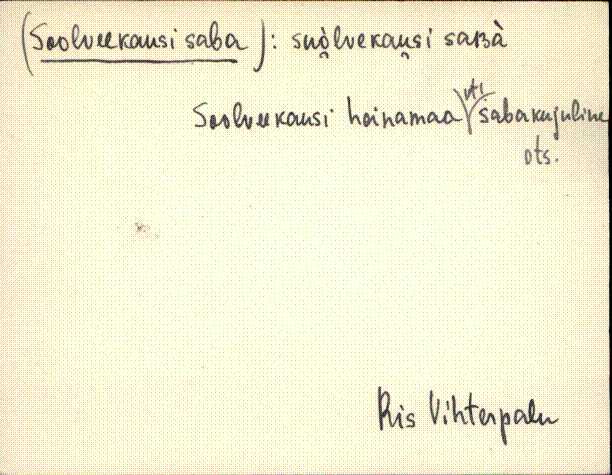 (Soolveekausi saba): suo̭lvekau̬si saʙà
Soolveekausi heinamaa sabakujuline
ots.
Ris Vihterpalu